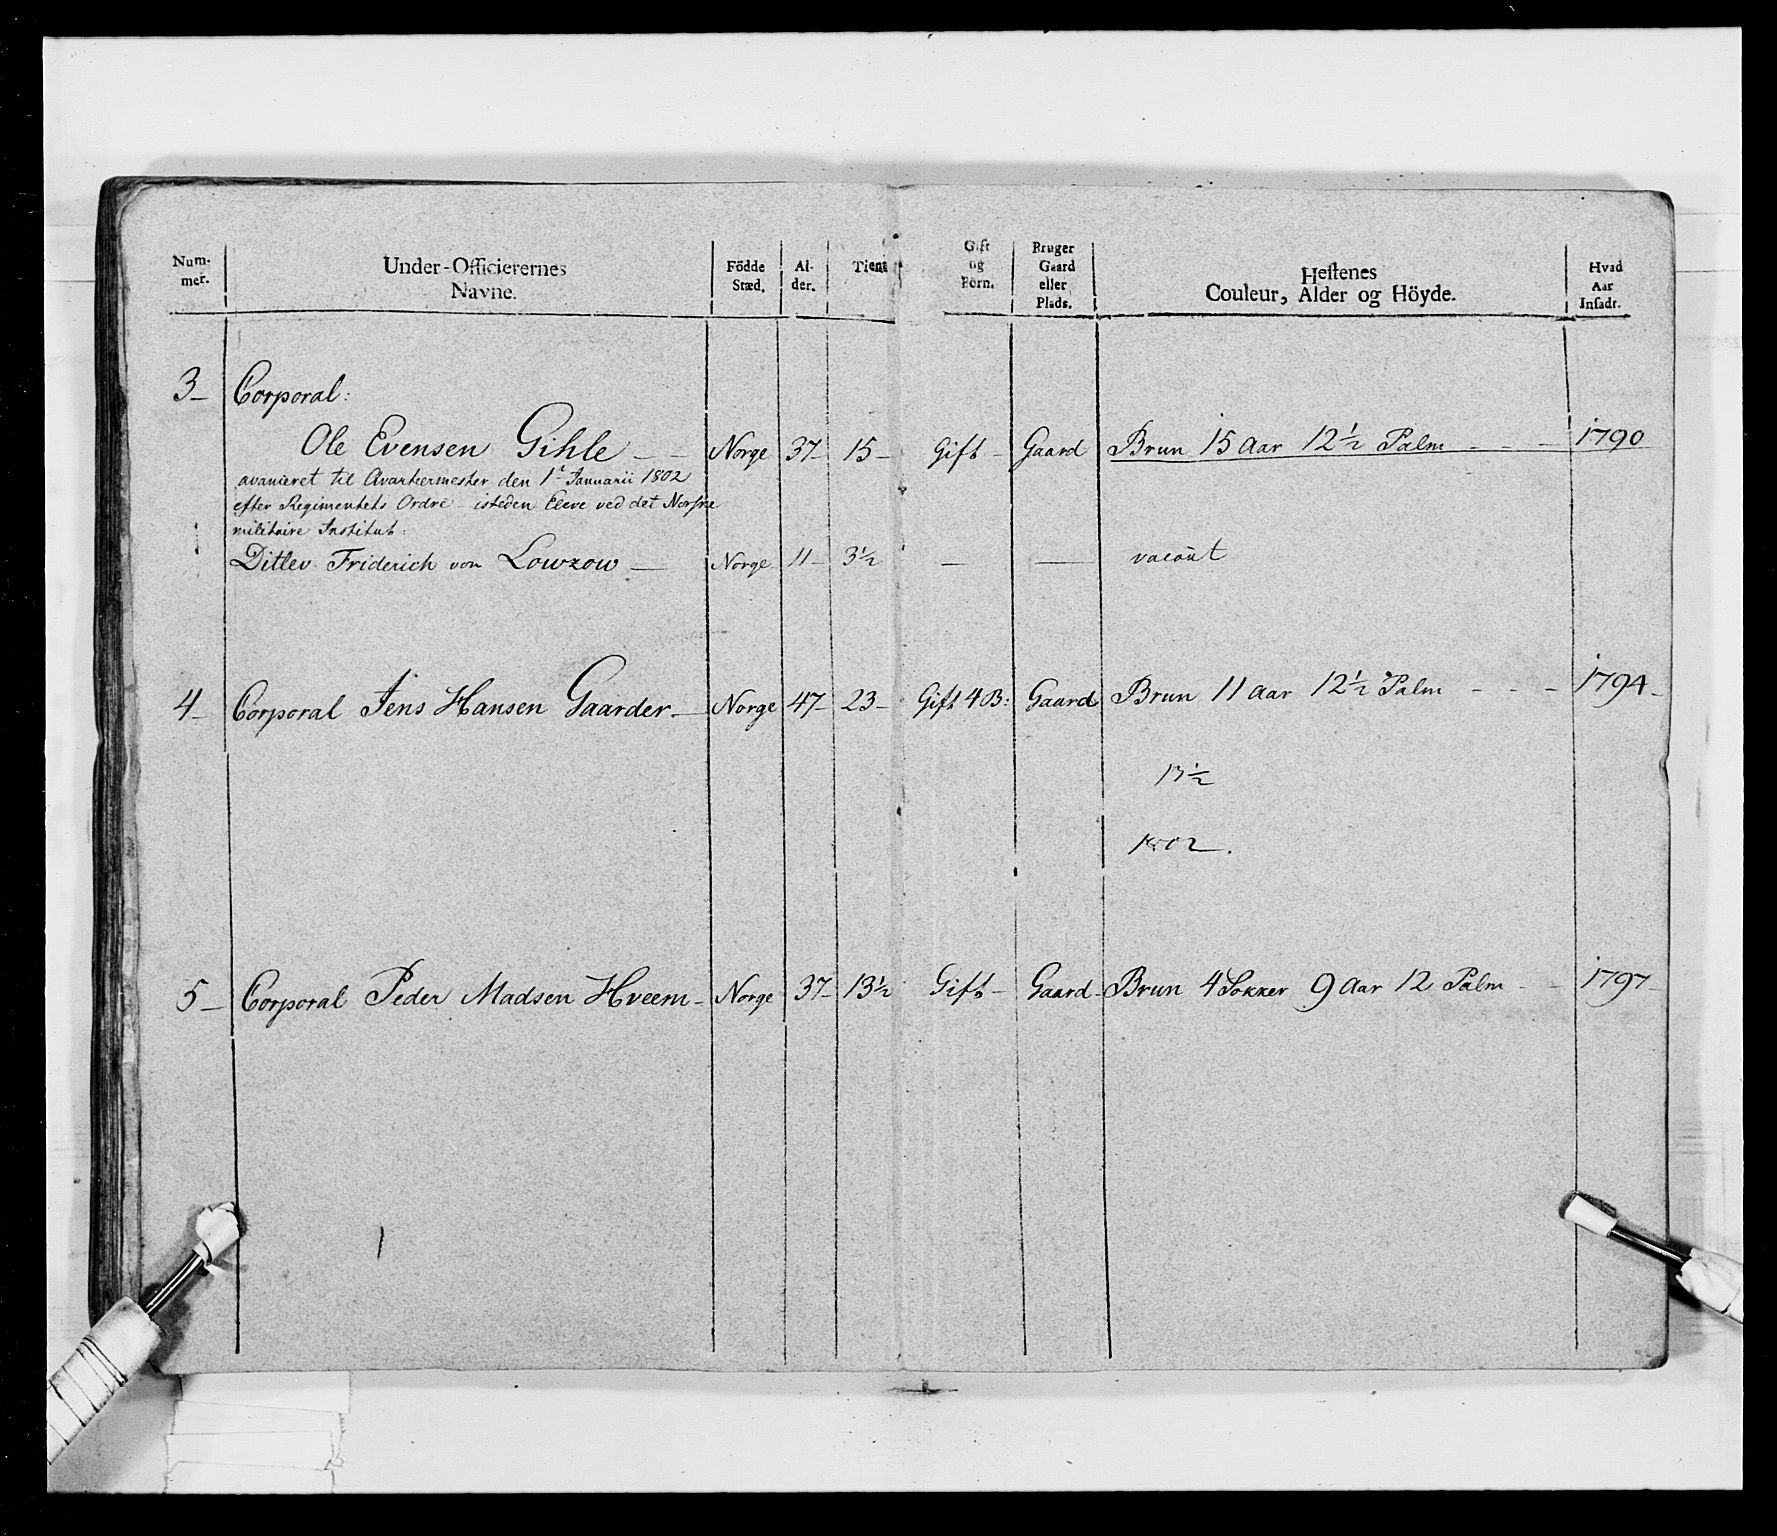 Num-mer. Under-Officierernes Navne. Födde Stæd. Al-der. Tient Gift og Börn. Bruger Gaard eller Plads. Hestenes Couleur, Alder og Höyde. Hvad Aar Insadt.
3 - Corporal:
Ole Evensen Gihle - - Norge 37 - 15 - Gift - Gaard Brun 15 Aar 12½ Palm - - - 1790
avanceret til Qvarteermester den 1t Januarii 1802
efter Regimentets Ordre isteden Eleve ved det Norske
militaire Institut:
Ditlev Friderich von Lowzow - Norge 11 - 3½ - - vacant
4 - Corporal Jens Hansen Gaarder - Norge 47 - 23 - Gift 4 B: Gaard Brun 11 Aar 12½ Palm - - - 1794 -
13½
1802.
5 - Corporal Peder Madsen Hveem - Norge 37 - 13½ Gift - Gaard - Brun 4 Sokker 9 Aar 12 Palm - - 1797 -